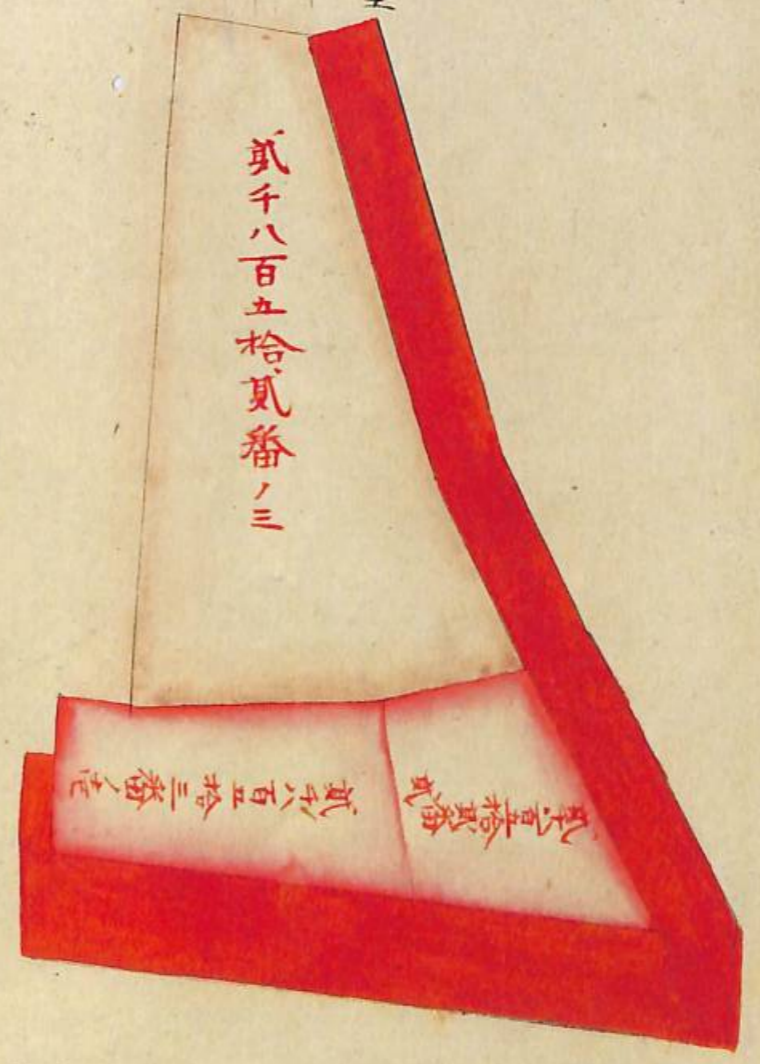 貳千八百五拾貳番ノ三
貳千八百五拾三番ノ壱
貳千八百五拾貳番
貳